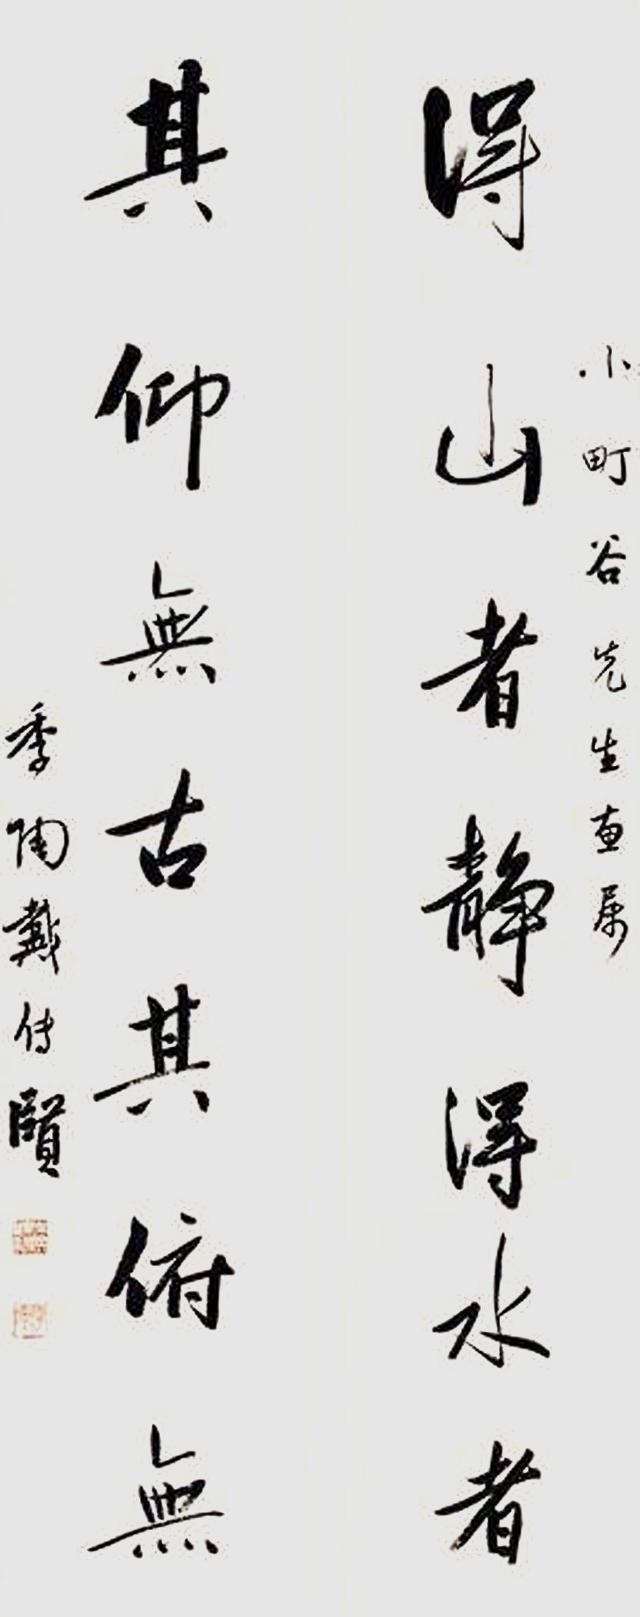 得山者静得水者
小町谷先生惠属
其仰無古其俯無
季陶戴传賢